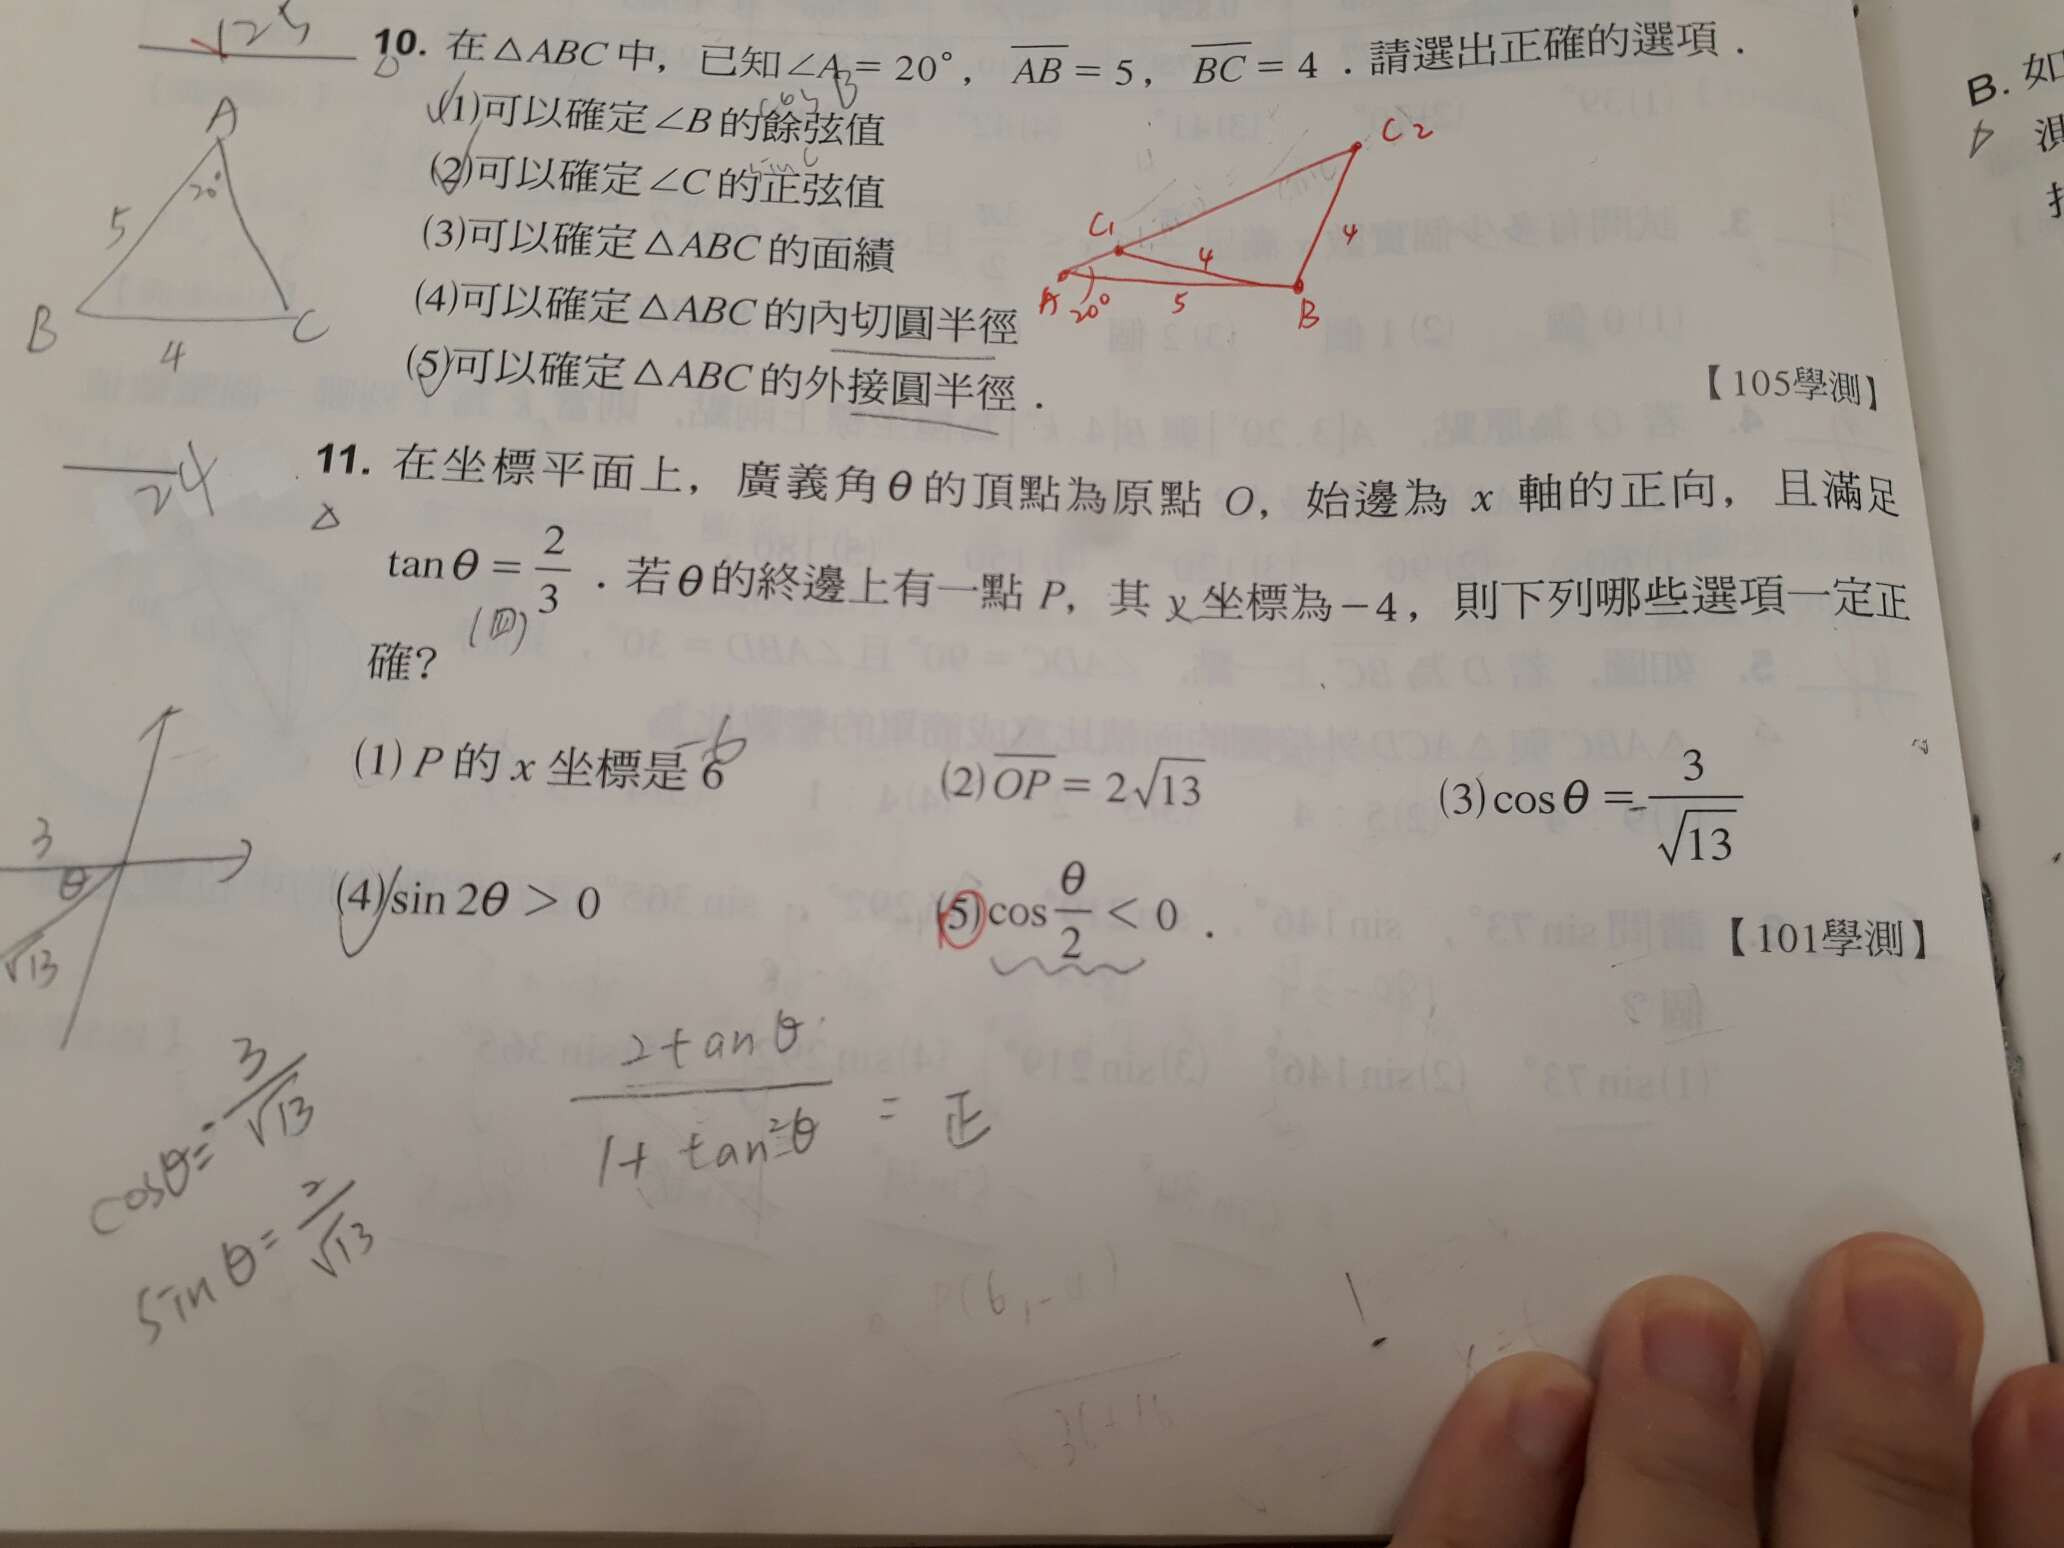 125
10. 在△ABC中，已知∠A=20°，AB=5，BC=4．請選出正確的選項．
(1)可以確定∠B的餘弦值
cos B
(2)可以確定∠C的正弦值
sin C
(3)可以確定△ABC的面績
(4)可以確定△ABC的內切圓半徑
(5)可以確定△ABC的外接圓半徑．
【105學測】
A
20°
5
B
4
C
C2
C1
4
4
A
20°
5
B
24
11. 在坐標平面上，廣義角θ的頂點為原點 O，始邊為 x 軸的正向，且滿足
tanθ=2/3．若θ的終邊上有一點 P，其 y 坐標為−4，則下列哪些選項一定正
(四)
確？
(1) P 的 x 坐標是 6
-6
(2) OP=2√13
(3) cosθ=3/√13
-
(4) sin2θ>0
(5) cos θ/2<0．
【101學測】
3
θ
√13
cosθ=-3/√13
sinθ=2/√13
2tanθ/1+tan²θ=正
B. 如